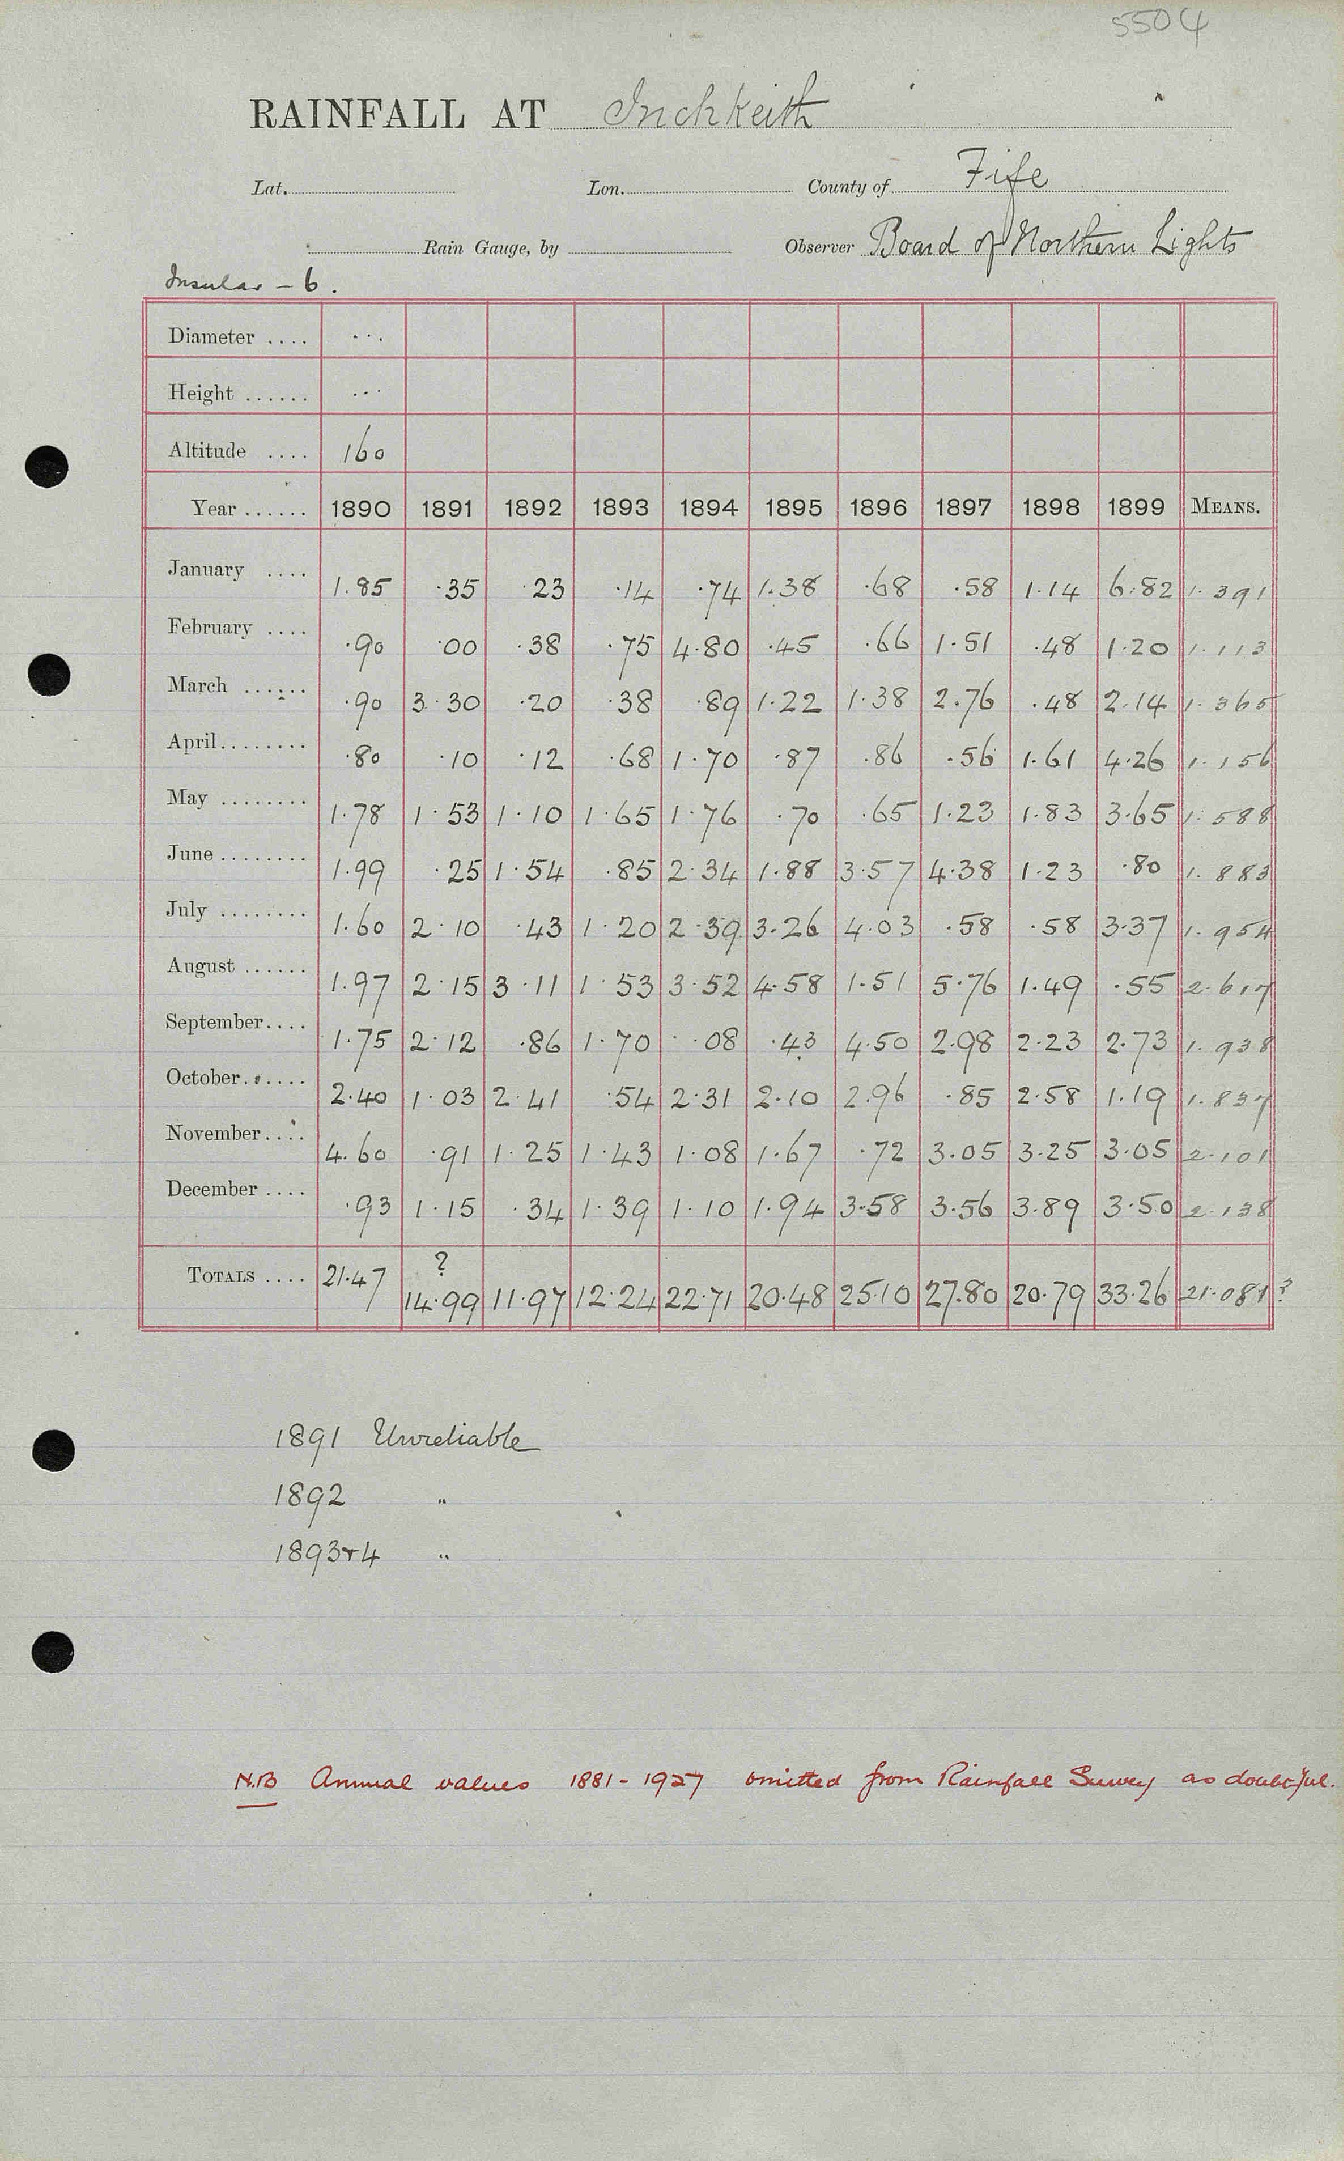 5504
RAINFALL AT Inchkeith
Lat. Lon. County of Fife
Rain Gauge, by Observer Board of Northern Lights
Insular - 6.
Diameter .... ...
Height ...... ...
Altitude .... 160
Year ...... 1890 1891 1892 1893 1894 1895 1896 1897 1898 1899 MEANS.
January .... 1.85 .35 .23 .14 .74 1.38 .68 .58 1.14 6.82 1.391
February .... .90 .00 .38 .75 4.80 .45 .66 1.51 .48 1.20 1.113
March ...... .90 3.30 .20 .38 .89 1.22 1.38 2.76 .48 2.14 1.365
April........ .80 .10 .12 .68 1.70 .87 .86 .56 1.61 4.26 1.156
May ........ 1.78 1.53 1.10 1.65 1.76 .70 .65 1.23 1.83 3.65 1.588
June ........ 1.99 .25 1.54 .85 2.34 1.88 3.57 4.38 1.23 .80 1.883
July ........ 1.60 2.10 .43 1.20 2.39 3.26 4.03 .58 .58 3.37 1.954
August ...... 1.97 2.15 3.11 1.53 3.52 4.58 1.51 5.76 1.49 .55 2.617
September.... 1.75 2.12 .86 1.70 .08 .43 4.50 2.98 2.23 2.73 1.938
October...... 2.40 1.03 2.41 .54 2.31 2.10 2.96 .85 2.58 1.19 1.837
November.... 4.60 .91 1.25 1.43 1.08 1.67 .72 3.05 3.25 3.05 2.101
December .... .93 1.15 .34 1.39 1.10 1.94 3.58 3.56 3.89 3.50 2.138
?
TOTALS .... 21.47 14.99 11.97 12.24 22.71 20.48 25.10 27.80 20.79 33.26 21.081?
1891 Unreliable
1892 "
1893+4 "
N.B Annual values 1881-1927 omitted from Rainfall Survey as doubtful.